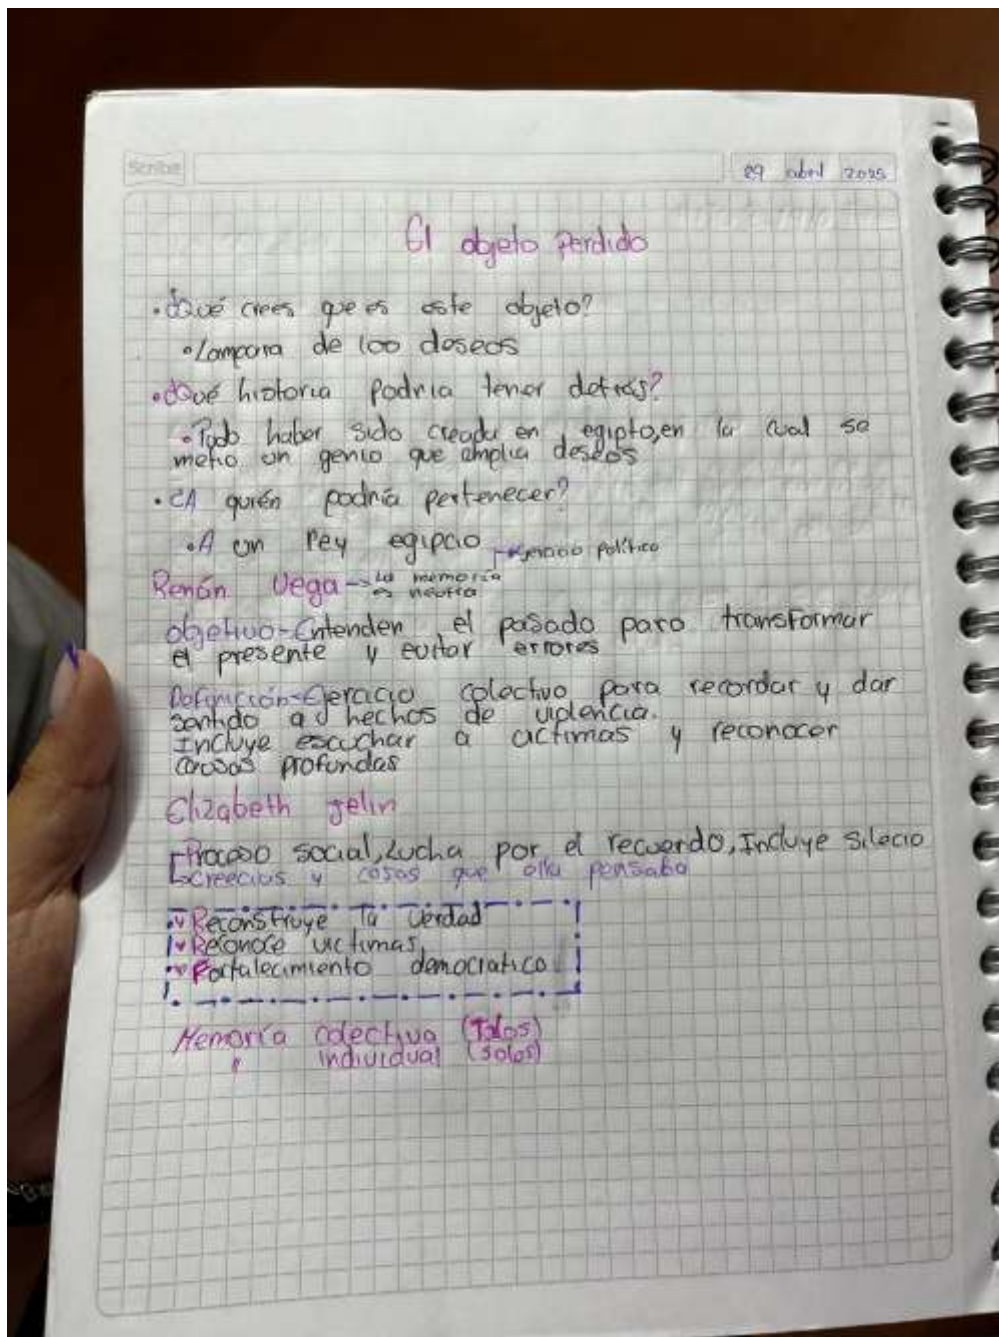 Scribe
29 abril 2025
El objeto perdido
• ¿Qué crees que es este objeto?
• Lampara de 100 deseos
• ¿Qué historia podria tener detras?
• Pudo haber sido creada en egipto, en la cual se
metio un genio que amplia deseos
• ¿A quién podría pertenecer?
• A un rey egipcio
político
Renán Vega → la memoria
es neutra
objetivo - Entender el pasado para transformar
el presente y evitar errores
Definición - Ejercicio colectivo para recordar y dar
sentido a hechos de violencia.
Incluye escuchar a victimas y reconocer
causas profundas
Elizabeth jelin
Proceso social, Lucha por el recuerdo, Incluye silecio
creecias y cosas que ella pensaba
Reconstruye la verdad
Reconoce victimas
Fortalecimiento democratico
Memoría colectiva (Todos)
" individual (solos)